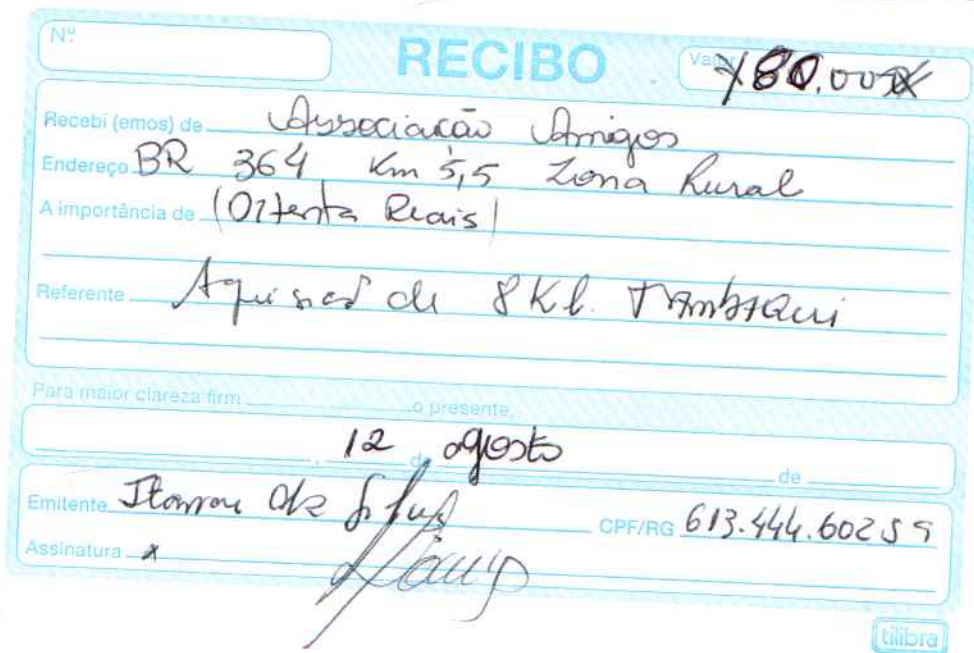 Nº
RECIBO
Valor 80,00
Recebi (emos) de Associação Amigos
Endereço BR 364 Km 5,5 Zona Rural
A importância de (Oitenta Reais)
Referente Aquisição de 8 Kl. Tambaqui
Para maior clareza firm o presente.
12 de agosto de
Emitente Itamar da Silva CPF/RG 613.444.602 59
Assinatura x
tilibra